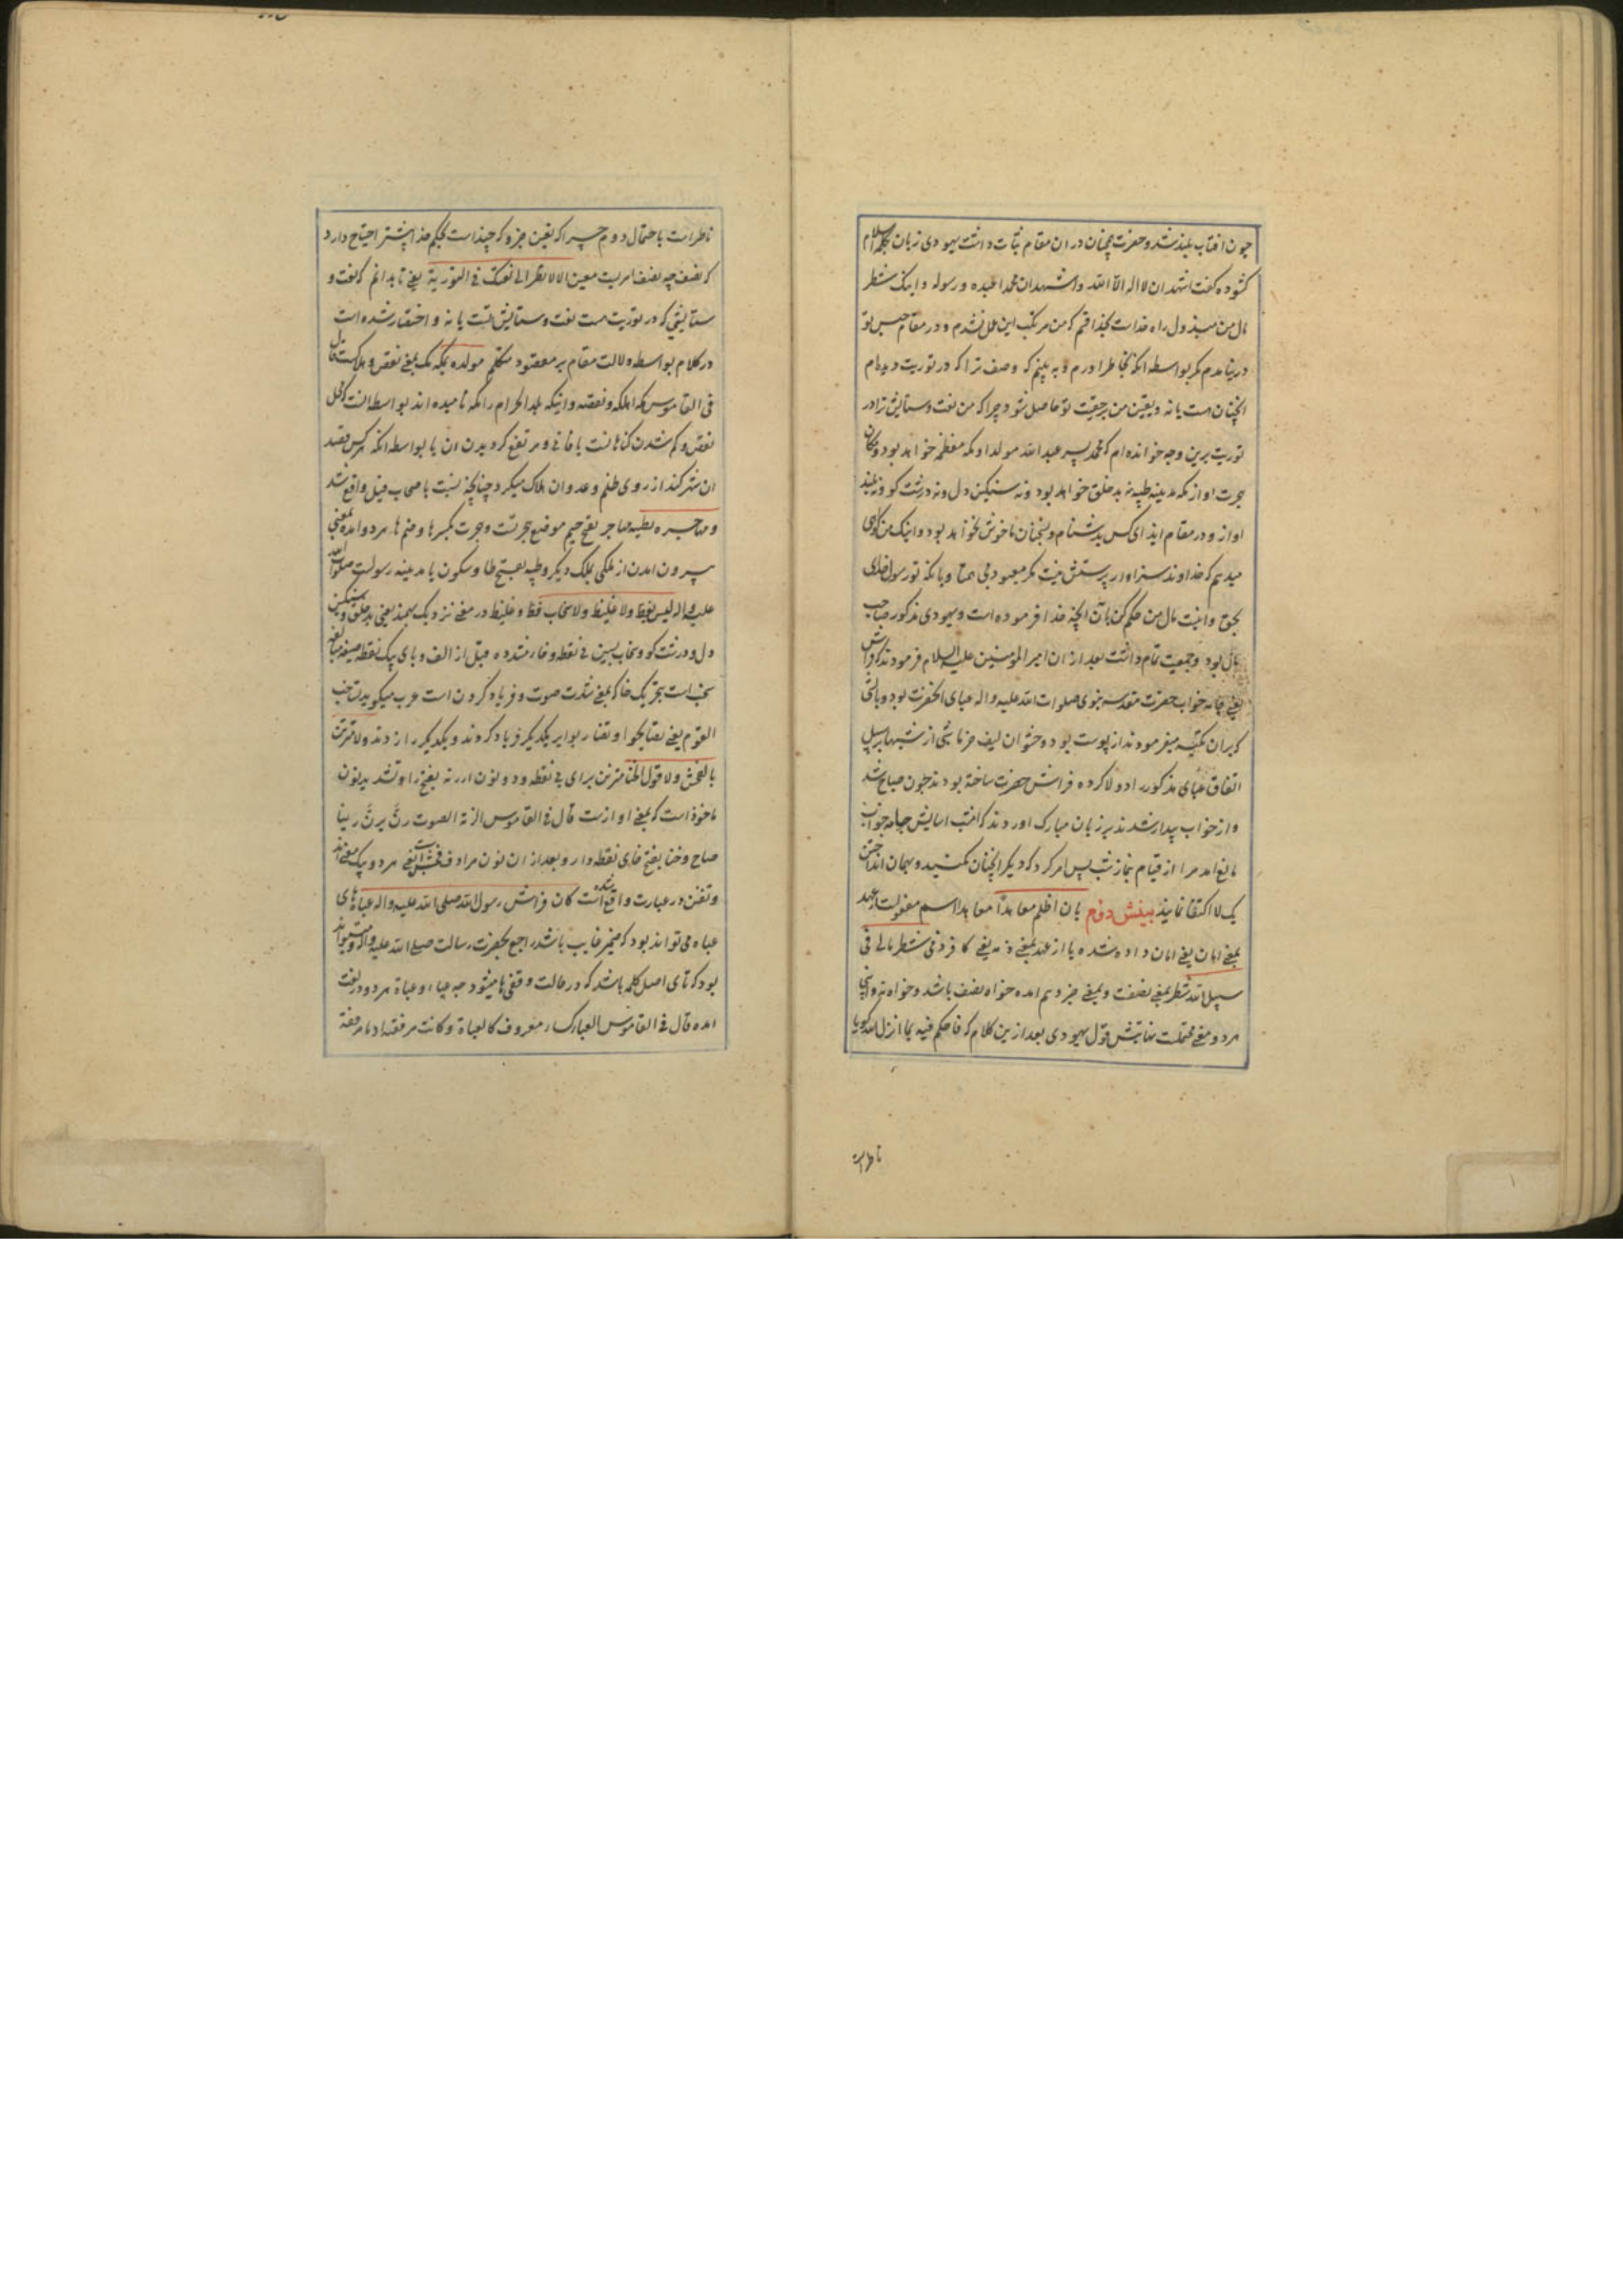 چون افتاب بلند شد و حضرت همچنان در ان مقام ثبات داشت یهودی زبان بکلمه اسلام
کشوده کفت اشهد ان لا اله الا الله و اشهد ان محمدا عبده و رسوله و اینک شطر
مال من مبذول راه خداست بخدا قسم که من مرتکب این عمل نشدم و در مقام حبس تو
در نیامدم مکر بواسطه انکه بخاطر اورم و به بینم که وصف ترا که در توریت دیده‌ام
انچنان هست یا نه و یقین من بر حقیت تو حاصل شود چرا که من نعت و ستایش ترا در
توریت برین وجه خوانده ام که محمد پسر عبد الله مولد او مکه معظمه خواهد بود و مکان
هجرت او از مکه مدینه طیبه نه بد خلق خواهد بود و نه سنکین دل و نه درشت کو و نه بلند
اواز و در مقام ایذای کس بدشنام و سخنان ناخوش نخواهد بود و اینک من کواهی
میدهم که خداوند سزاوار پرستش نیست مکر معبود بی همتا و بانکه تو رسول خدای
بحق و اینست مال من حکم کن بآن انچه خدا فرموده است و یهودی مذکور صاحب
مال بود و جمعیت تمام داشت بعد از ان امیر المومنین علیه السلام فرمودند که فراش
یعنی جامه خواب حضرت مقدسه نبوی صلوات الله علیه و اله عبای انحضرت بود و بالشی
که بران تکیه میفرمودند از پوست بود و حشو ان لیف خرما شبی از شبها بر سبیل
اتفاق عبای مذکور را دولا کرده فراش حضرت ساخته بودند چون صباح شد
و از خواب بیدار شدند بر زبان مبارک اوردند که امشب اسایش جامه خواب
مانع امد مرا از قیام بنماز شب پس امر کرد که دیکر انچنان نکنید و بهمان انداختن
یک لا اکتفا نمایند بینش دوم بان اظلم معاهدا معاهد اسم مفعولست از عهد
بمعنی امان یعنی امان داده شده یا از عهد بمعنی ذمه یعنی کافر ذمی شطر مالی فی
سبیل الله شطر بمعنی نصفست و بمعنی جزو هم امده خواه نصف باشد و خواه نه و اینجا
هر دو معنی محتملست نهایتش قول یهودی بعد ازین کلام که فاحکم فیه بما انزل الله کویا
ناظر است
ناظر است باحتمال دوم چرا که تعین جزو که چند است بحکم خدا بیشتر احتیاج دارد
که نصف چه نصف امریست معین الا لانظر الی نعتک فی التوریة یعنی تا بدانم که نعت و
ستایشی که در توریت هست نعت و ستایش تست یا نه و اختصار شده است
در کلام بواسطه دلالت مقام بر مقصود متکلم مولده بمکه مک بمعنی نقص و هلاکست قال
فی القاموس مکه اهلکه و نقصه و اینکه بلد الحرام را مکه نامیده اند بواسطه انست که محل
نقص و کم شدن کناهانست یا فانی و مرتفع کردیدن ان یا بواسطه انکه هر کس قصد
ان شهر کند از روی ظلم و عدوان هلاک میکردد چنانچه نسبت باصحاب فیل واقع شد
و مهاجره بطیبه مهاجر بفتح جیم موضع هجرتست و هجرت بکسر ها و ضم ها هر دو امده بمعنی
بیرون امدن از ملکی بملک دیکر و طیبه بفتح طا و سکون یا مدینه رسولست صلوات الله
علیه و اله لیس بفظ ولا غلیظ ولا سخاب فظ و غلیظ در معنی نزدیک بهمند یعنی بد خلق و سنکین
دل و درشت کو و سخاب بسین بی نقطه و خاء مشدده قبل از الف و بای یک نقطه صیغه مبالغه
سخب است بتحریک خا که بمعنی شدت صوت و فریاد کردن است عرب میکوید تساخب
القوم یعنی تصایحوا و تضاربوا بر یکدیکر فریاد کردند و یکدیکر را زدند ولا مترنن
بالفحش ولا قول الخنا مترنن برای بی نقطه و دو نون از رنه بفتح را و تشدید نون
ماخوذ است که بمعنی اوازست قال فی القاموس الرنة الصوت رن یرن رنینا
صاح و خنا بفتح خای نقطه دار و بعد از ان نون مرادف فحش است یعنی هر دو بیک معنی اند
و تفنن در عبارت واقع شده است کان فراش رسول الله صلی الله علیه و اله عباه های
عباه می تواند بود که ضمیر غایب باشد راجع بحضرت رسالت صلی الله علیه و اله و میتواند
بود که تای اصل کلمه باشد که در حالت وقفی ها میشود چه عباء و عباة هر دو در لغت
امده قال فی القاموس العباء کساء معروف کالعباة و کانت مرفقته ادما مرفقة